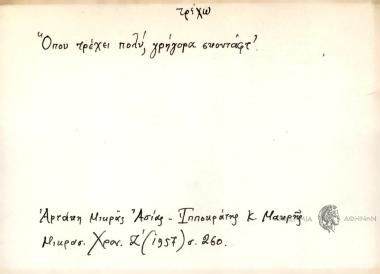 τρέχω
Ὅπου τρέχει πολύ, γρήγορα σκοντάφτ'.
Ἀρτάκη Μικρᾶς Ἀσίας - Ἱπποκράτης Κ. Μακρῆς
Μικρασ. Χρον. Ζ' (1957) σ. 260.
ΑΘΗΝΩΝ